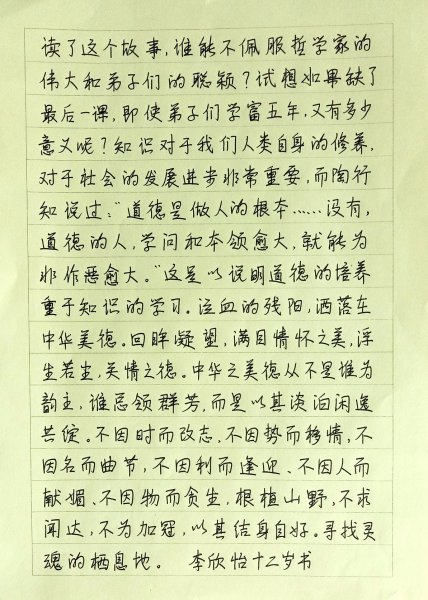 读了这个故事,谁能不佩服哲学家的
伟大和弟子们的聪颖?试想如果缺了
最后一课,即使弟子们学富五车,又有多少
意义呢?知识对于我们人类自身的修养,
对于社会的发展进步非常重要,而陶行
知说过:“道德是做人的根本……没有,
道德的人,学问和本领愈大,就能为
非作恶愈大。”这是以说明道德的培养
重于知识的学习。泣血的残阳,洒落在
中华美德。回眸凝望,满目情怀之美,浮
生若尘,关情之德。中华之美德从不是谁为
韵主,谁忌领群芳,而是以其淡泊闲逸
共绽。不因时而改志、不因势而移情,不
因名而曲节,不因利而逢迎、不因人而
献媚、不因物而贪生,根植山野,不求
闻达,不为加冠,以其结身自好。寻找灵
魂的栖息地。 李欣怡十二岁书